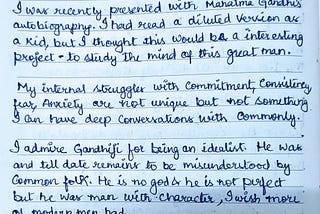 I was recently presented with Mahatma Gandhi's
autobiography. I had read a diluted version as
a kid, but I thought this would be a interesting
project - to study the mind of this great man.
My internal struggles with commitment, Consistency
fear, Anxiety are not unique but not something
I can have deep conversations with commonly.
I admire Gandhiji for being an idealist. He was
and till date remains to be misunderstood by
Common folk. He is no god & he is not perfect
but he was man with character, I wish more
modern men had